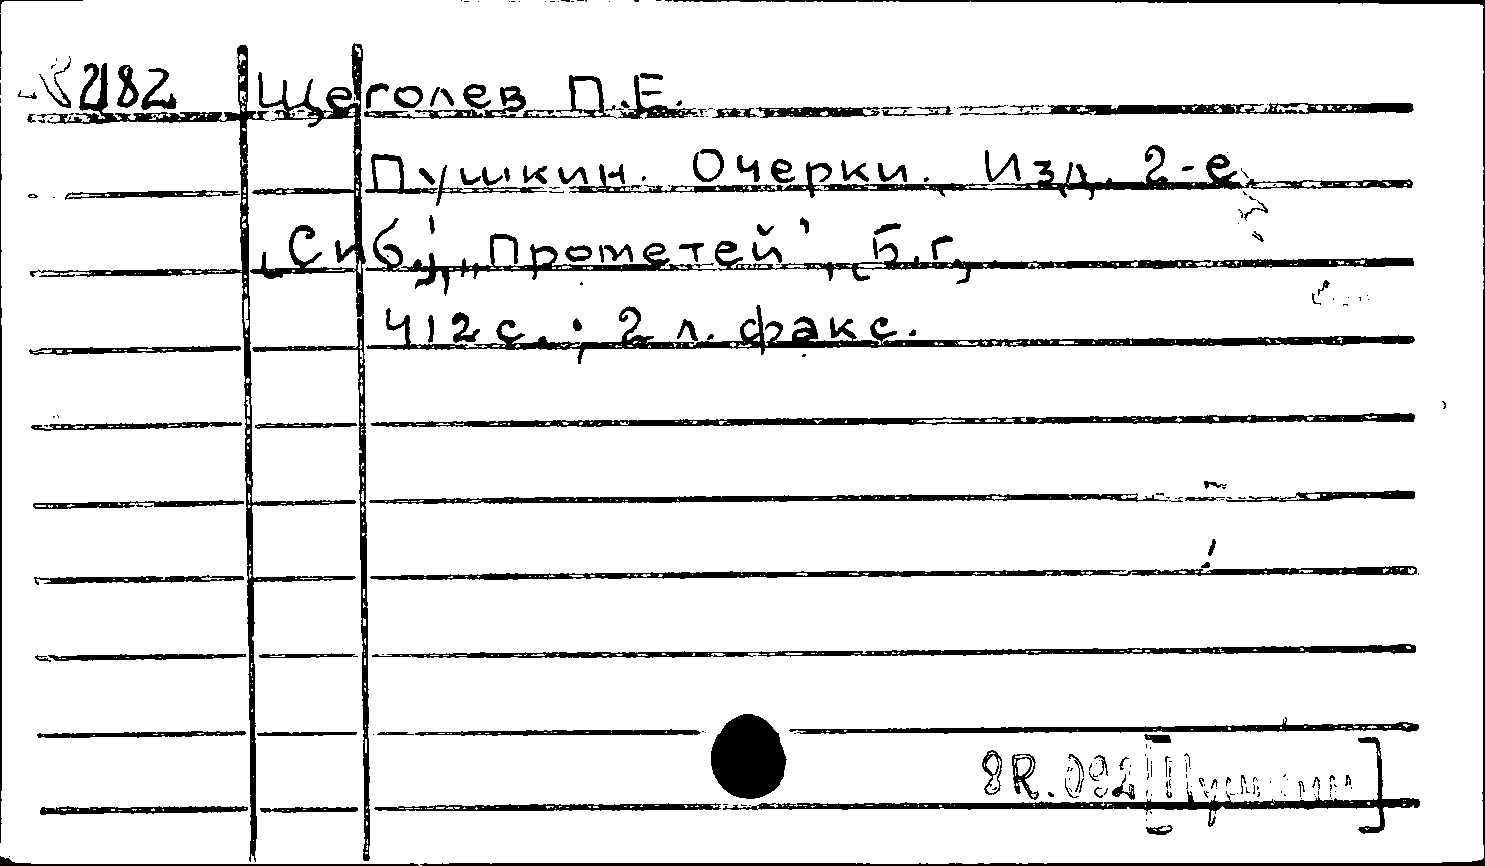 2182 Щеголев П.Е.
Пушкин. Очерки. Изд. 2-е.
Спб., „Прометей", б.г.,
412 с.; 2 л. факс.
8R.092[Пушкин]